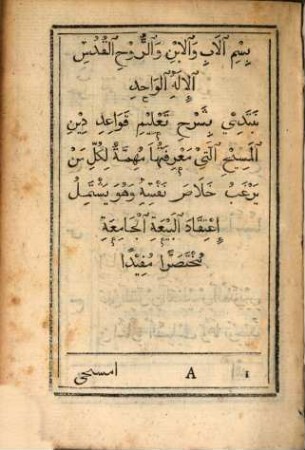 بِسْمِ ٱلْآبِ وَٱلْابْنِ وَٱلرُّوحِ ٱلْقُدُسِ
ٱلْإِلَهِ ٱلْوَاحِدِ
نَبْتَدِئُ بِشَرْحِ تَعْلِيمِ قَوَاعِدِ دِينِ
ٱلْمَسِيحِ ٱلَّتِي مَعْرِفَتُهَا مُهِمَّةٌ لِكُلِّ مَنْ
يَرْغَبُ خَلَاصَ نَفْسِهِ وَهُوَ يَشْتَمِلُ
إِعْتِقَادَ ٱلْبِيعَةِ ٱلْجَامِعَةِ
مُخْتَصَرًا مُفِيدًا
١ A امسيحى